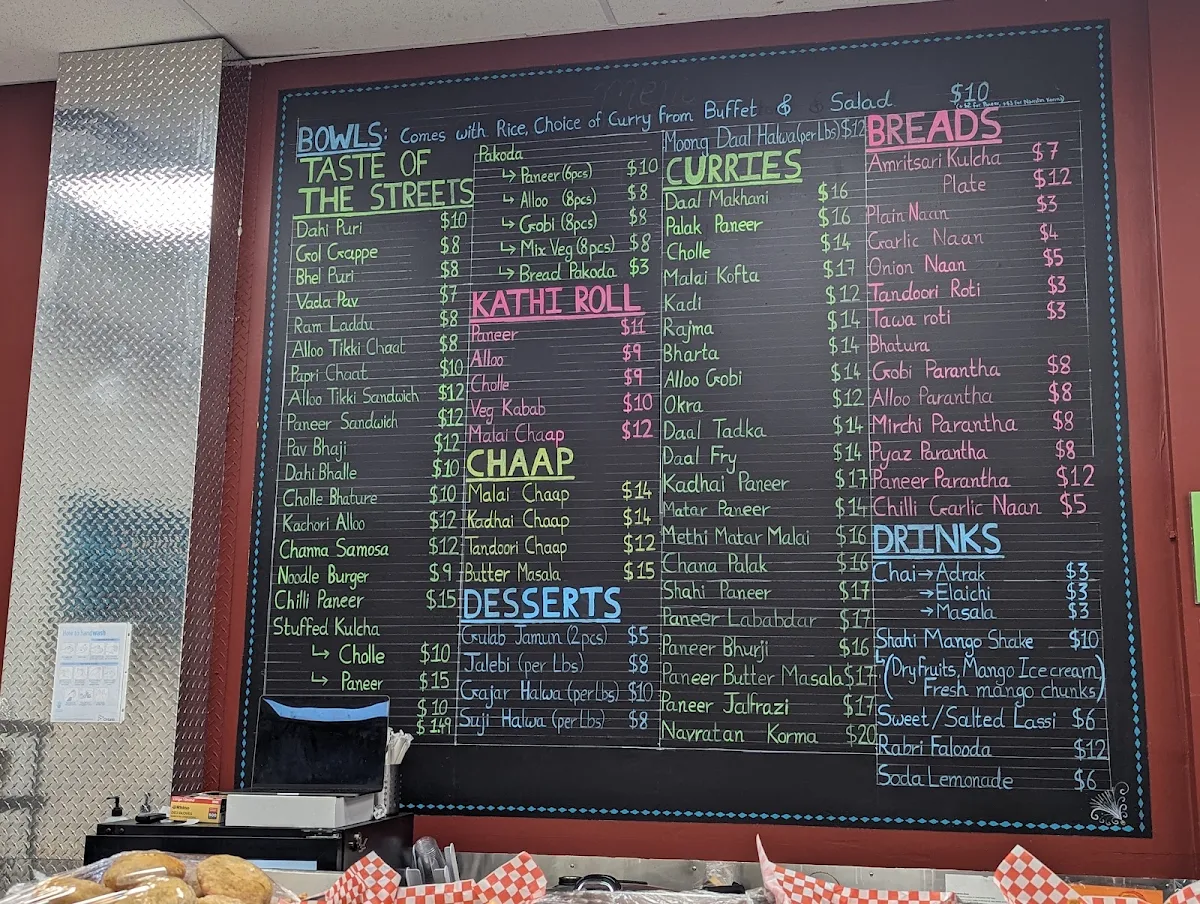 BOWLS: Comes with Rice, Choice of Curry from Buffet & Salad $10
TASTE OF
THE STREETS
Dahi Puri $10
Gol Grappe $8
Bhel Puri $8
Vada Pav $7
Ram Laddu $8
Alloo Tikki Chaat $8
Papri Chaat $10
Alloo Tikki Sandwich $12
Paneer Sandwich $12
Pav Bhaji $12
Dahi Bhalle $10
Cholle Bhature $10
Kachori Alloo $12
Channa Samosa $12
Noodle Burger $9
Chilli Paneer $15
Stuffed Kulcha
↳ Cholle $10
↳ Paneer $15
$10
$1.49
Pakoda
↳ Paneer (6pcs) $10
↳ Alloo (8pcs) $8
↳ Gobi (8pcs) $8
↳ Mix Veg (8pcs) $8
↳ Bread Pakoda $3
KATHI ROLL
Paneer $11
Alloo $9
Cholle $9
Veg Kabab $10
Malai Chaap $12
CHAAP
Malai Chaap $14
Kadhai Chaap $14
Tandoori Chaap $12
Butter Masala $15
DESSERTS
Gulab Jamun (2pcs) $5
Jalebi (per Lbs) $8
Gajar Halwa (per Lbs) $10
Suji Halwa (per Lbs) $8
Moong Daal Halwa (per Lbs) $12
CURRIES
Daal Makhani $16
Palak Paneer $16
Cholle $14
Malai Kofta $17
Kadi $12
Rajma $14
Bharta $14
Alloo Gobi $14
Okra $12
Daal Tadka $14
Daal Fry $14
Kadhai Paneer $17
Matar Paneer $14
Methi Matar Malai $16
Chana Palak $16
Shahi Paneer $17
Paneer Lababdar $17
Paneer Bhurji $16
Paneer Butter Masala $17
Paneer Jalfrazi $17
Navratan Korma $20
BREADS
Amritsari Kulcha $7
Plate $12
Plain Naan $3
Garlic Naan $4
Onion Naan $5
Tandoori Roti $3
Tawa roti $3
Bhatura
Gobi Parantha $8
Alloo Parantha $8
Mirchi Parantha $8
Pyaz Parantha $8
Paneer Parantha $12
Chilli Garlic Naan $5
DRINKS
Chai → Adrak $3
→ Elaichi $3
→ Masala $3
Shahi Mango Shake $10
↳ (Dry fruits, Mango Ice cream,
Fresh mango chunks)
Sweet/Salted Lassi $6
Rabri Falooda $12
Soda Lemonade $6